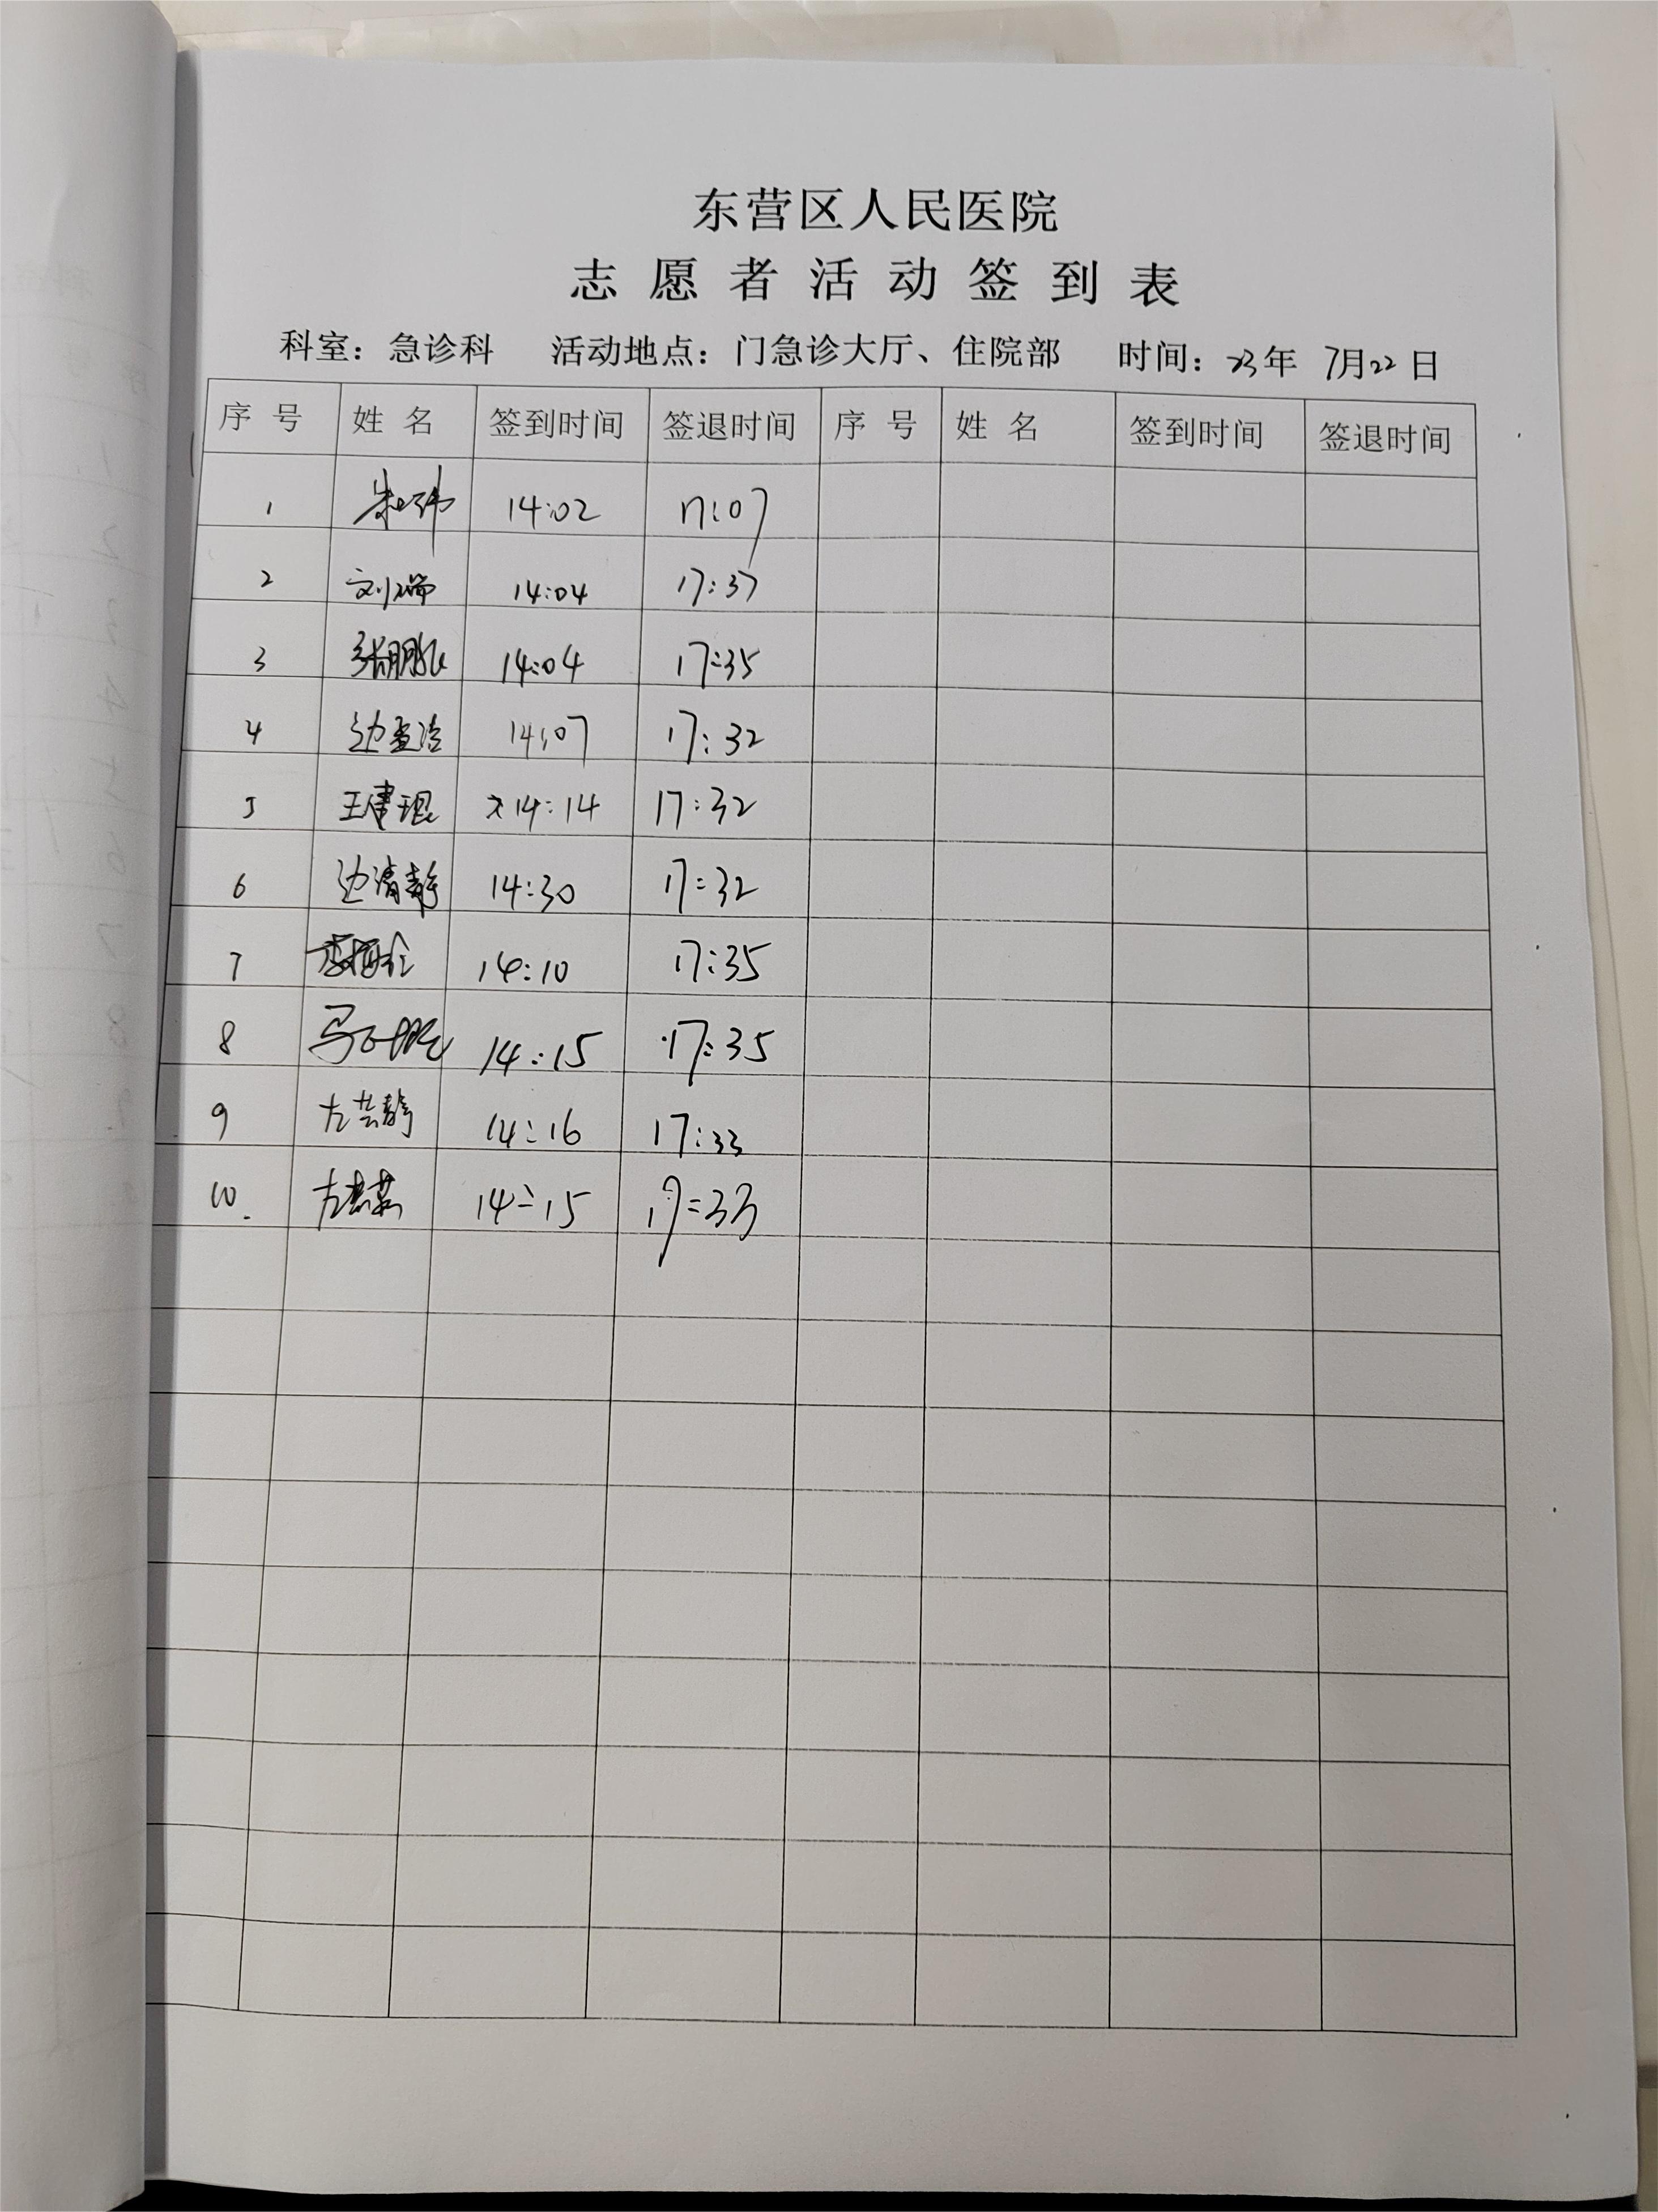 东营区人民医院
志愿者活动签到表
科室：急诊科 活动地点：门急诊大厅、住院部 时间：23年 7月22日
序号 姓名 签到时间 签退时间 序号 姓名 签到时间 签退时间
1 14:02 17:07
2 刘瑞 14:04 17:37
3 14:04 17:35
4 边孟洁 14:07 17:32
5 王建琨 14:14 17:32
6 边清静 14:30 17:32
7 14:10 17:35
8 14:15 17:35
9 左芸静 14:16 17:33
10. 14:15 17:33